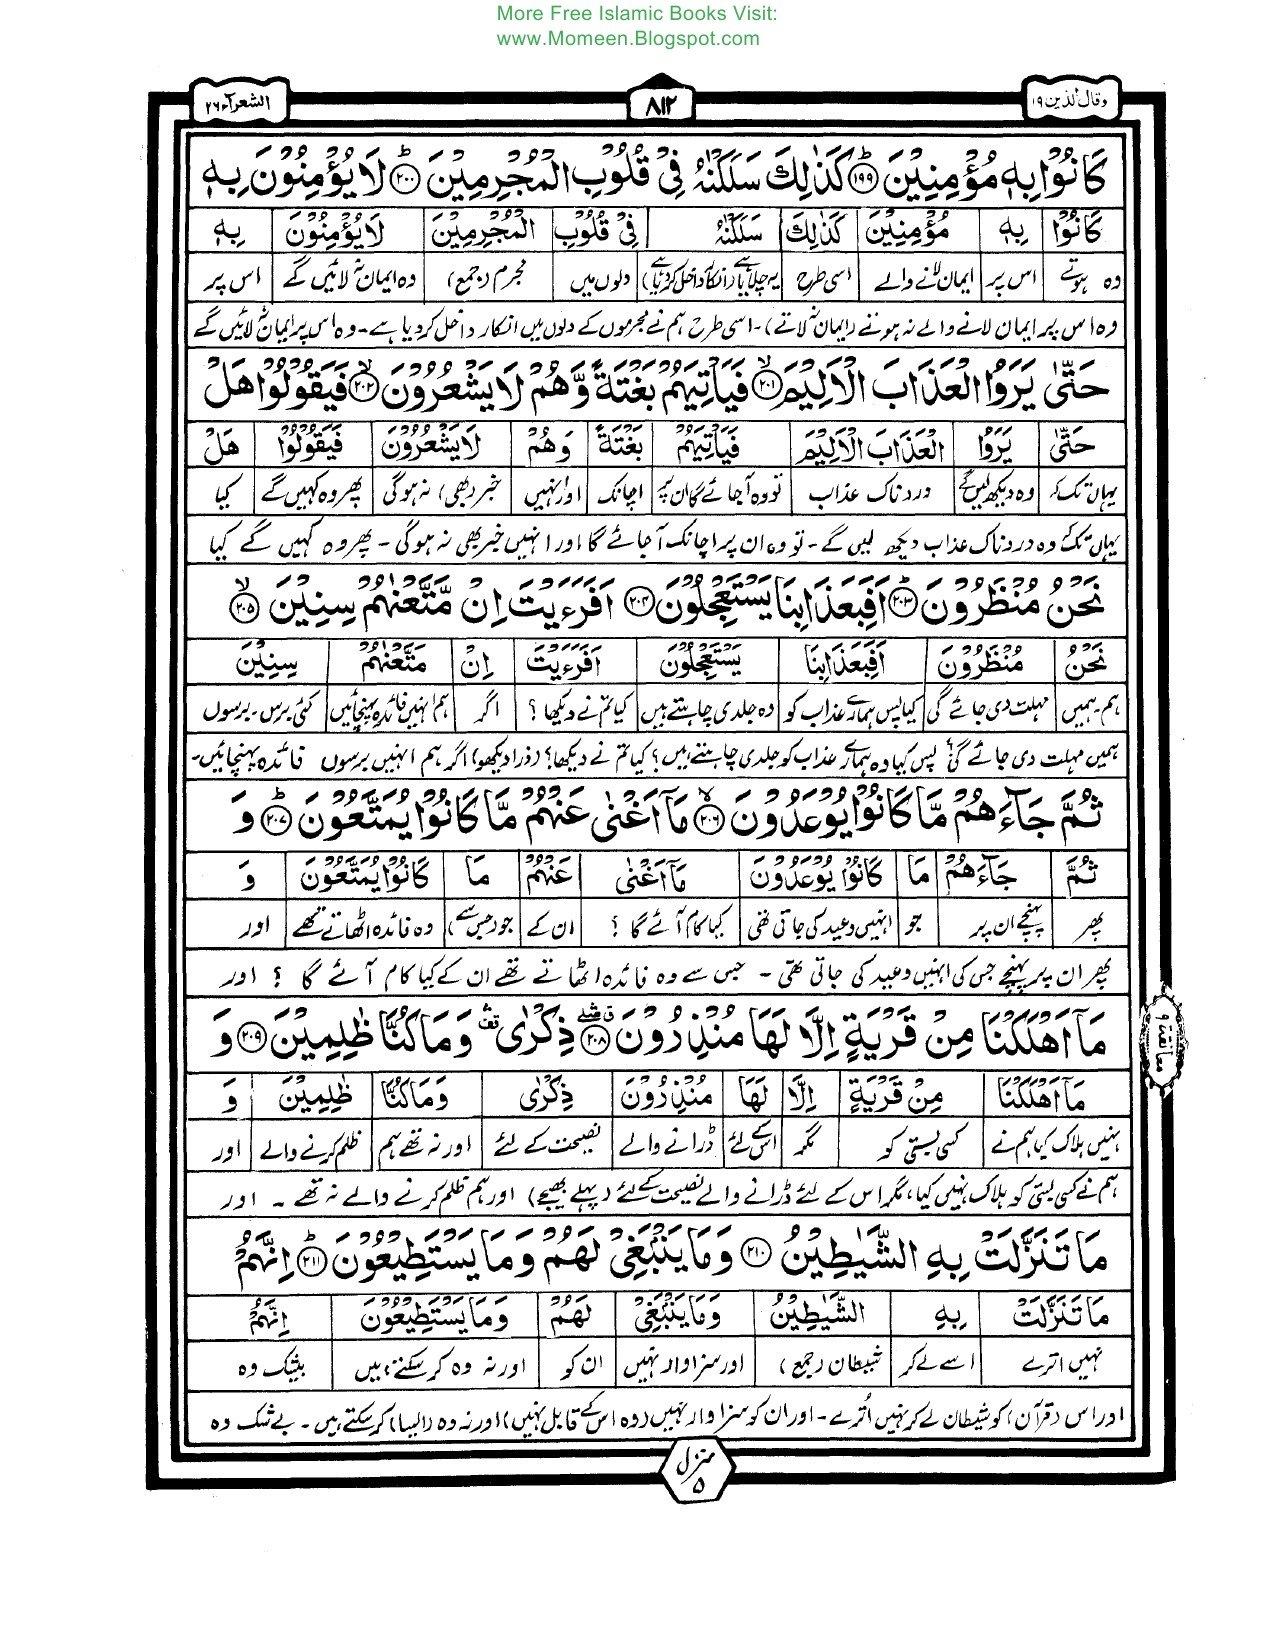 More Free Islamic Books Visit:
www.Momeen.Blogspot.com
وقال الذین ۱۹ ۸۱۲ الشعرآء ۲۶
كَانُوْا بِهٖ مُؤْمِنِيْنَ ﴿۱۹۹﴾ كَذٰلِكَ سَلَكْنٰهُ فِيْ قُلُوْبِ الْمُجْرِمِيْنَ ﴿۲۰۰﴾ لَا يُؤْمِنُوْنَ بِهٖ
كَانُوْا بِهٖ مُؤْمِنِيْنَ كَذٰلِكَ سَلَكْنٰهُ فِيْ قُلُوْبِ الْمُجْرِمِيْنَ لَا يُؤْمِنُوْنَ بِهٖ
وہ ہوتے اس پر ایمان لانے والے اسی طرح یہ چلایا ہے (انکار داخل کردیا ہے) دلوں میں مجرم (جمع) وہ ایمان نہ لائیں گے اس پر
وہ اس پر ایمان لانے والے نہ ہوتے (ایمان نہ لاتے)۔ اسی طرح ہم نے مجرموں کے دلوں میں انکار داخل کردیا ہے۔ وہ اس پر ایمان نہ لائیں گے
حَتّٰى يَرَوُا الْعَذَابَ الْاَلِيْمَ ﴿۲۰۱﴾ فَيَاْتِيَهُمْ بَغْتَةً وَّهُمْ لَا يَشْعُرُوْنَ ﴿۲۰۲﴾ فَيَقُوْلُوْا هَلْ
حَتّٰى يَرَوُا الْعَذَابَ الْاَلِيْمَ فَيَاْتِيَهُمْ بَغْتَةً وَهُمْ لَا يَشْعُرُوْنَ فَيَقُوْلُوْا هَلْ
یہاں تک کہ وہ دیکھ لیں گے دردناک عذاب تو وہ آجائے گا ان پر اچانک اور انہیں خبر (بھی) نہ ہوگی پھر وہ کہیں گے کیا
یہاں تک کہ وہ دردناک عذاب دیکھ لیں گے۔ تو وہ ان پر اچانک آجائے گا اور انہیں خبر بھی نہ ہوگی۔ پھر وہ کہیں گے کیا
نَحْنُ مُنْظَرُوْنَ ﴿۲۰۳﴾ اَفَبِعَذَابِنَا يَسْتَعْجِلُوْنَ ﴿۲۰۴﴾ اَفَرَءَيْتَ اِنْ مَّتَّعْنٰهُمْ سِنِيْنَ ﴿۲۰۵﴾
نَحْنُ مُنْظَرُوْنَ اَفَبِعَذَابِنَا يَسْتَعْجِلُوْنَ اَفَرَءَيْتَ اِنْ مَتَّعْنٰهُمْ سِنِيْنَ
ہم۔ہمیں مہلت دی جائے گی کیا پس ہمارے عذاب کو وہ جلدی چاہتے ہیں کیا تم نے دیکھا؟ اگر ہم انہیں فائدہ پہنچائیں کئی برس۔برسوں
ہمیں مہلت دی جائے گی؟ پس کیا وہ ہمارے عذاب کو جلدی چاہتے ہیں؟ کیا تم نے دیکھا؟ (ذرا دیکھو) اگر ہم انہیں برسوں فائدہ پہنچائیں۔
ثُمَّ جَآءَهُمْ مَّا كَانُوْا يُوْعَدُوْنَ ﴿۲۰۶﴾ مَآ اَغْنٰى عَنْهُمْ مَّا كَانُوْا يُمَتَّعُوْنَ ﴿۲۰۷﴾ وَ
ثُمَّ جَآءَهُمْ مَا كَانُوْا يُوْعَدُوْنَ مَآ اَغْنٰى عَنْهُمْ مَا كَانُوْا يُمَتَّعُوْنَ وَ
پھر پہنچے ان پر جو انہیں وعید کی جاتی تھی کیا کام آئے گا؟ ان کے جو (جس سے) وہ فائدہ اٹھاتے تھے اور
پھر ان پر پہنچے جس کی انہیں وعید کی جاتی تھی۔ جس سے وہ فائدہ اٹھاتے تھے ان کے کیا کام آئے گا؟ اور
مَآ اَهْلَكْنَا مِنْ قَرْيَةٍ اِلَّا لَهَا مُنْذِرُوْنَ ﴿۲۰۸﴾ ذِكْرٰى وَمَا كُنَّا ظٰلِمِيْنَ ﴿۲۰۹﴾ وَ
معانقة ۹
مَآ اَهْلَكْنَا مِنْ قَرْيَةٍ اِلَّا لَهَا مُنْذِرُوْنَ ذِكْرٰى وَمَا كُنَّا ظٰلِمِيْنَ وَ
نہیں ہلاک کیا ہم نے کسی بستی کو مگر اس کے لئے ڈرانے والے نصیحت کے لئے اور نہ تھے ہم ظلم کرنے والے اور
ہم نے کسی بستی کو ہلاک نہیں کیا، مگر اس کے لئے ڈرانے والے نصیحت کے لئے (پہلے بھیجے) اور ہم ظلم کرنے والے نہ تھے۔ اور
مَا تَنَزَّلَتْ بِهِ الشَّيٰطِيْنُ ﴿۲۱۰﴾ وَمَا يَنْۢبَغِيْ لَهُمْ وَمَا يَسْتَطِيْعُوْنَ ﴿۲۱۱﴾ اِنَّهُمْ
مَا تَنَزَّلَتْ بِهِ الشَّيٰطِيْنُ وَمَا يَنْۢبَغِيْ لَهُمْ وَمَا يَسْتَطِيْعُوْنَ اِنَّهُمْ
نہیں اترے اسے لے کر شیطان (جمع) اور سزاوار نہیں ان کو اور نہ وہ کرسکتے ہیں بیشک وہ
اور اس (قرآن) کو شیطان لے کر نہیں اُترے۔ اور ان کو سزاوار نہیں (وہ اس کے قابل نہیں) اور نہ وہ (ایسا) کرسکتے ہیں۔ بے شک وہ
منزل ۵